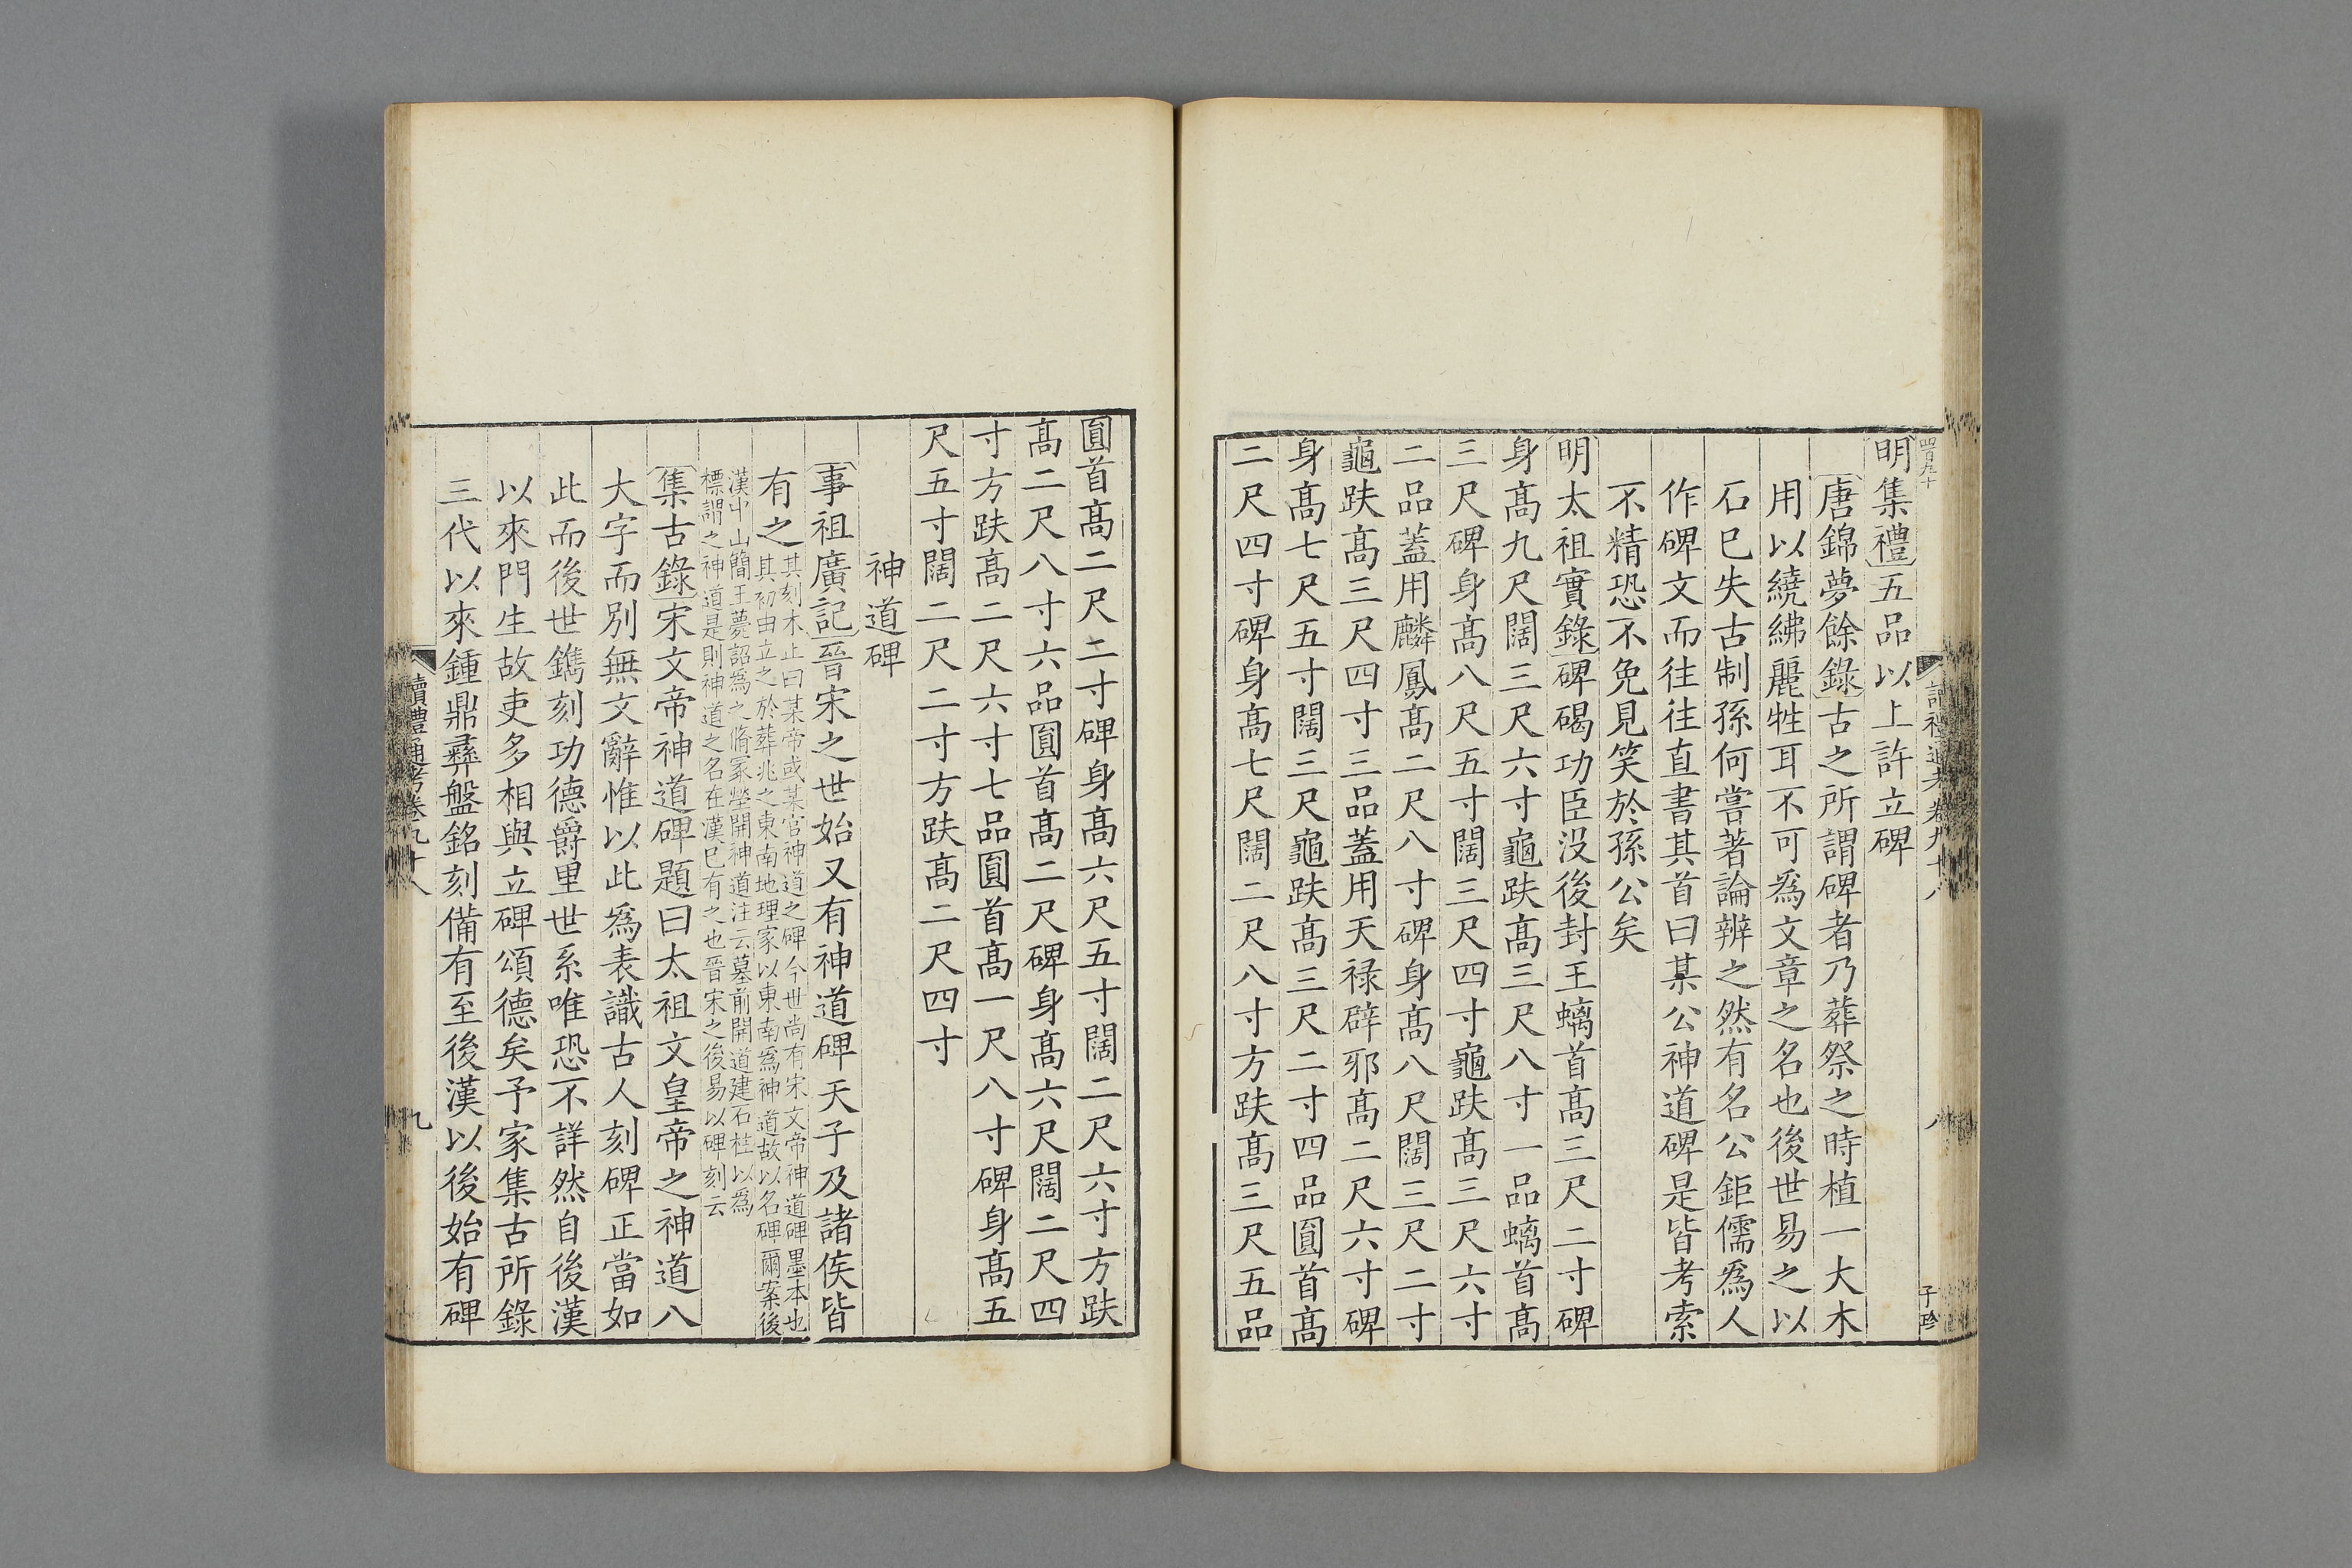 明集禮五品以上許立碑
唐錦夢餘錄古之所謂碑者乃葬祭之時植一大木
用以繞紼麗牲耳不可為文章之名也後世易之以
石巳失古制孫何嘗著論辨之然有名公鉅儒為人
作碑文而往往直書其首曰某公神道碑是皆考索
不精恐不免見笑於孫公矣
明太祖實錄碑碣功臣沒後封王螭首高三尺二寸碑
身高九尺闊三尺六寸龜趺高三尺八寸一品螭首高
三尺碑身高八尺五寸闊三尺四寸龜趺高三尺六寸
二品蓋用麟鳳高二尺八寸碑身高八尺闊三尺二寸
龜趺高三尺四寸三品蓋用天祿辟邪高二尺六寸碑
身高七尺五寸闊三尺龜趺高三尺二寸四品圓首高
二尺四寸碑身高七尺闊二尺八寸方趺高三尺五品
圓首高二尺二寸碑身高六尺五寸闊二尺六寸方趺
高二尺八寸六品圓首高二尺碑身高六尺闊二尺四
寸方趺高二尺六寸七品圓首高一尺八寸碑身高五
尺五寸闊二尺二寸方趺高二尺四寸
神道碑
事祖廣記晉宋之世始又有神道碑天子及諸侯皆
有之
其刻木止曰某帝或某官神道之碑今世尚有宋文帝神道碑墨本也
其初由立之於葬兆之東南地理家以東南為神道故以名碑爾案後
漢中山簡王薨詔為之脩冢塋開神道注云墓前開道建石柱以為
標謂之神道是則神道之名在漢巳有之也晉宋之後易以碑刻云
集古錄宋文帝神道碑題曰太祖文皇帝之神道八
大字而別無文辭惟以此為表識古人刻碑正當如
此而後世鐫刻功德爵里世系唯恐不詳然自後漢
以來門生故吏多相與立碑頌德矣予家集古所錄
三代以來鍾鼎彞盤銘刻備有至後漢以後始有碑
讀禮通考卷九十八
九